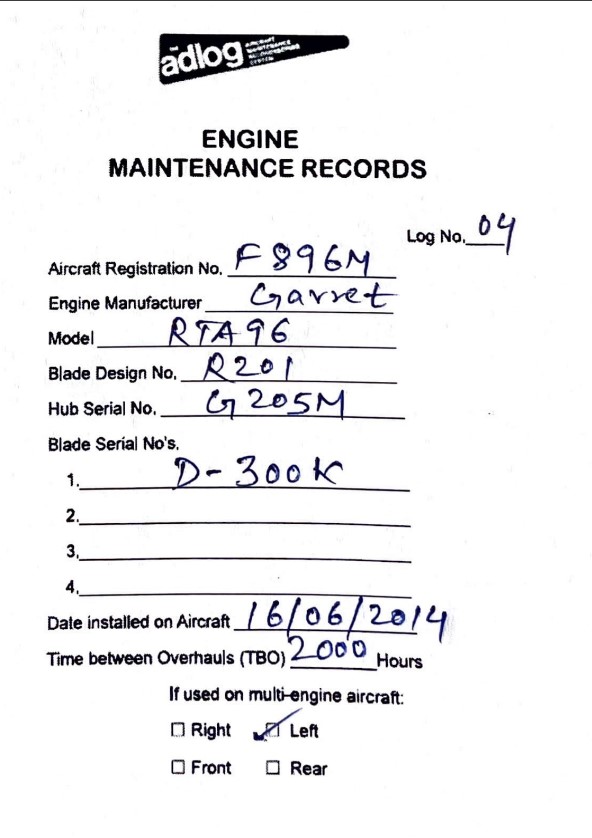 THE
adlog AIRCRAFT
MAINTENANCE
RECORDKEEPING
SYSTEM
ENGINE
MAINTENANCE RECORDS
Log No. 04
Aircraft Registration No. F896M
Engine Manufacturer Garret
Model RTA96
Blade Design No. R201
Hub Serial No. G205M
Blade Serial No's.
1. D-300K
2.
3.
4.
Date installed on Aircraft 16/06/2014
Time between Overhauls (TBO) 2000 Hours
If used on multi-engine aircraft:
☐ Right ☑ Left
☐ Front ☐ Rear